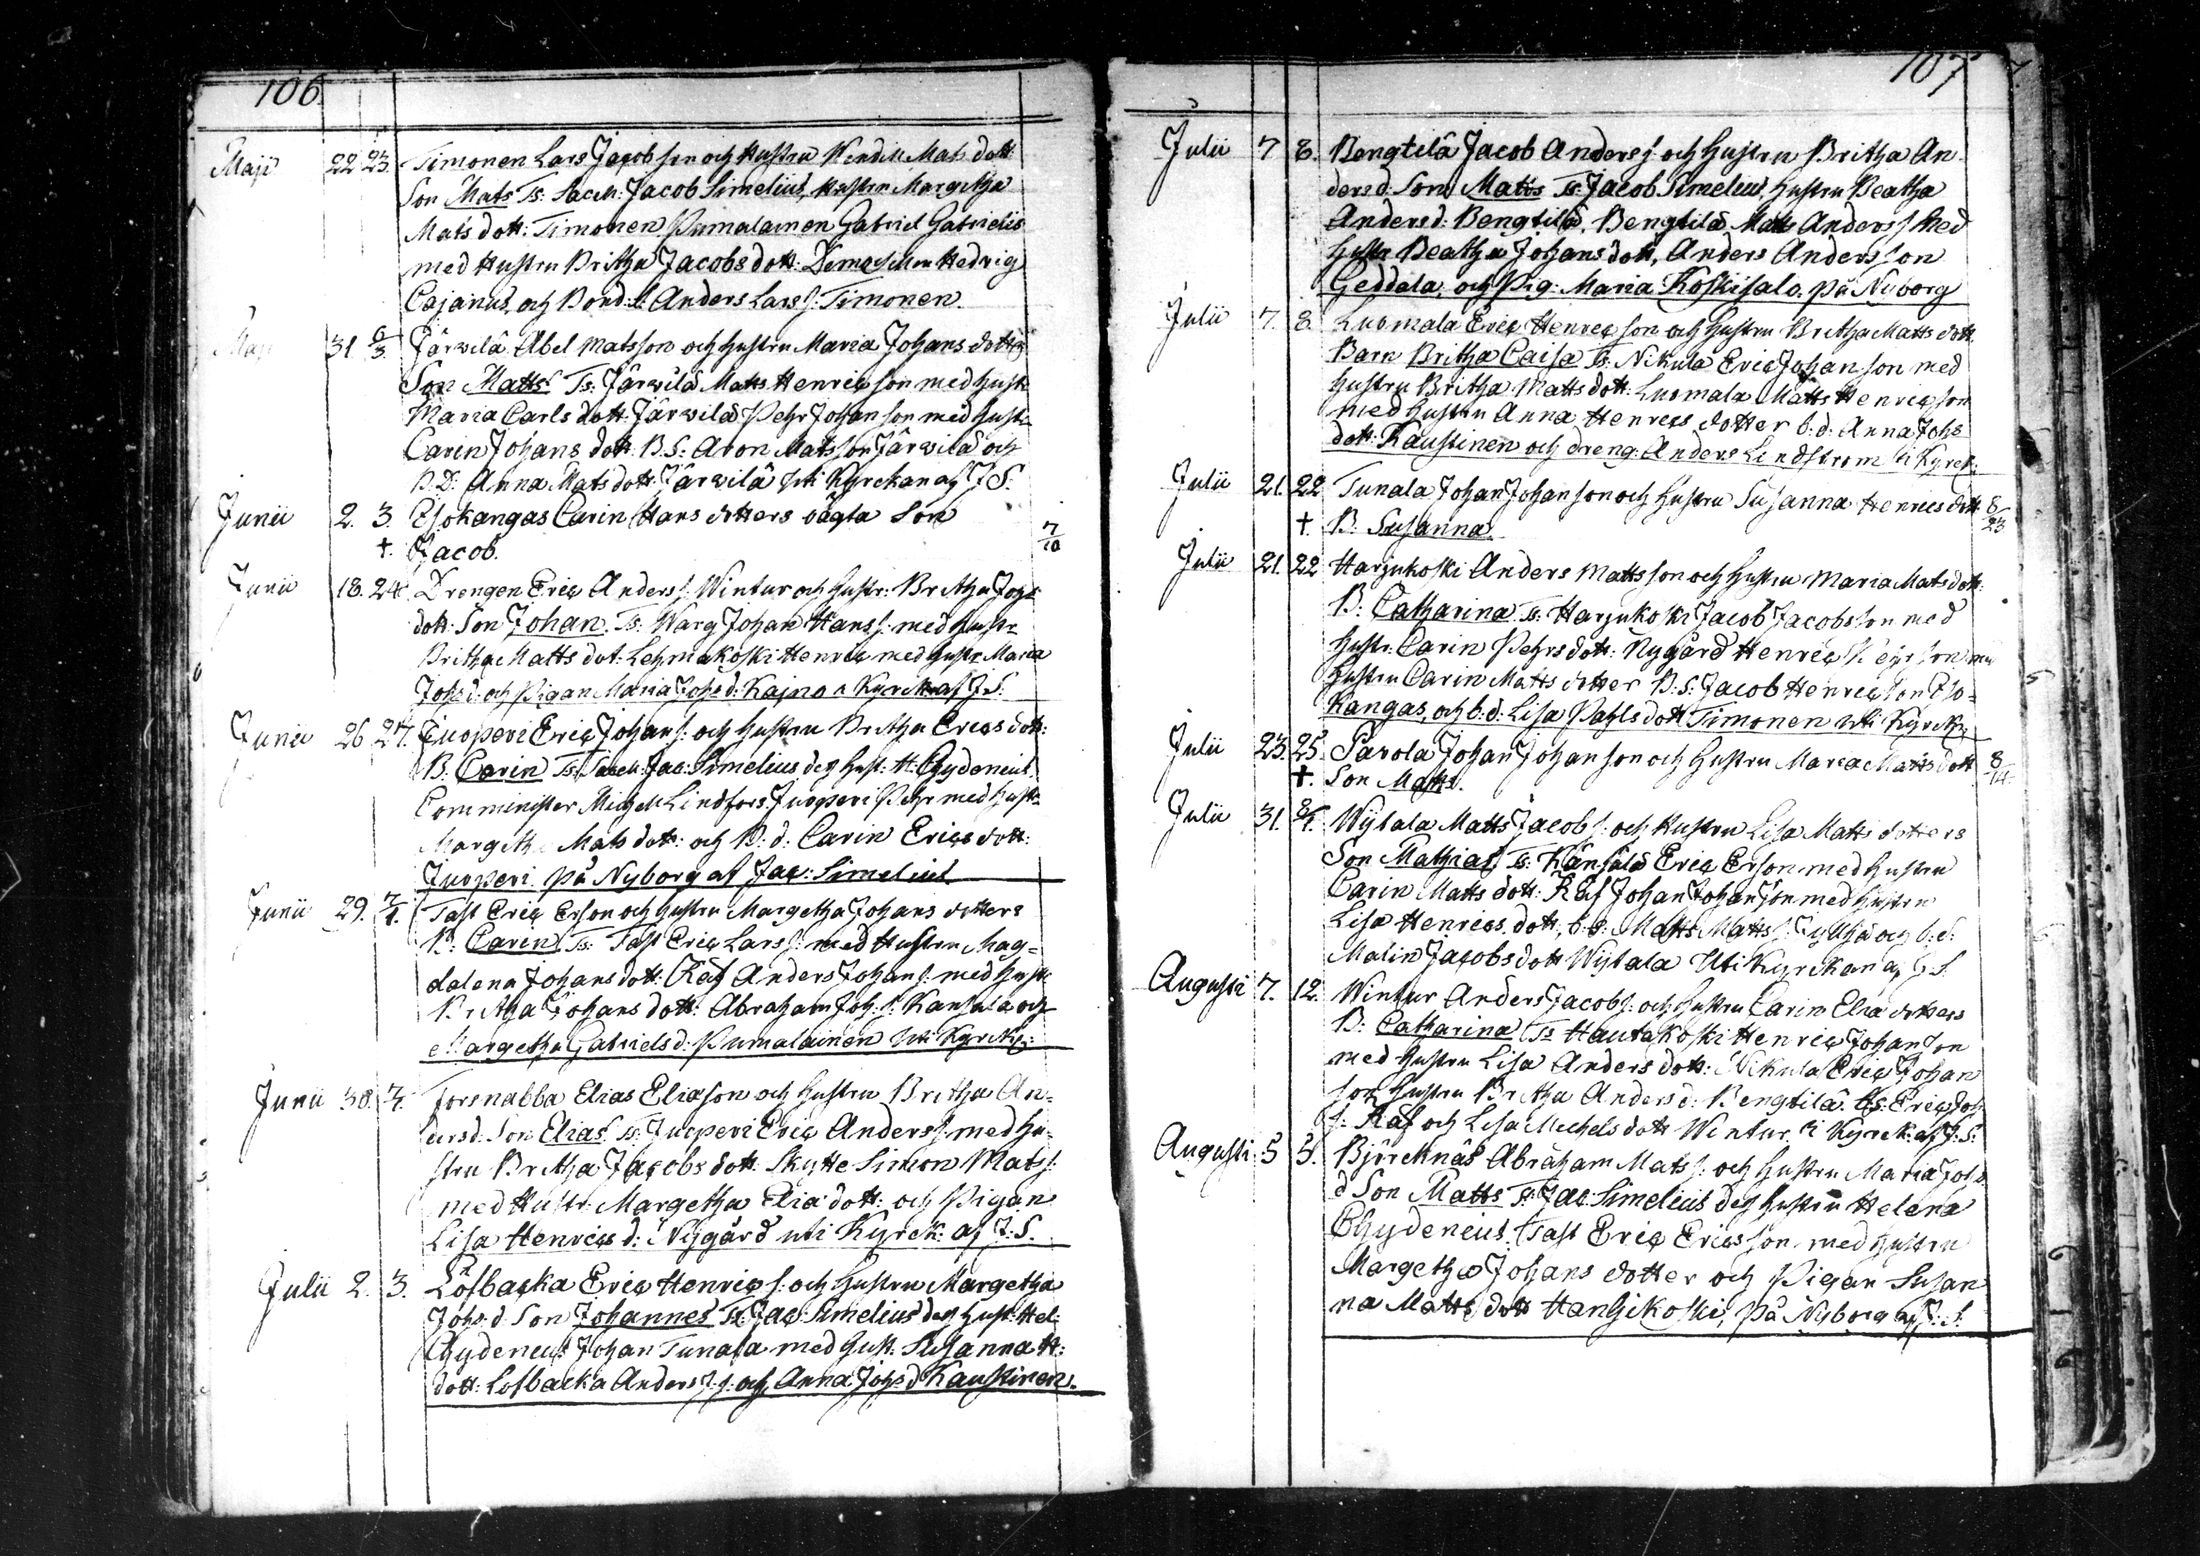 106
Maji 22 23. Timonen Lars Jacobson och Hustru Wendell Mats dott:
Son Mats Ts: Sacell: Jacob Simelius, Hustru Margetha
Mats dott: Timonen Pumalainen Gabriel Gabrielis
med Hustru Britha Jacobs dott: Demoisellen Hedvig
Cajanus, och Bond: S: Anders Lars s: Timonen.
Maji 31 6/3 Järvilä Abel Matsson och hustru Maria Johans dotters
Son Matts Ts: Järwilä Matts Henricson med hustr
Maria Carls dott: Järwilä Pehr Johanson med hustr
Carin Johans dott: B.S: Aron Matsson Järwilä och
B.D: Anna Mats dott: Järwilä Uti Kyrckan af J S.
Junii 2. 3. Esokangas Carin Hans dotters oägta Son
†. Jacob. 7/10
Junii 18. 24. Drengen Eric Anders s: Wintur och hustr: Britha Johs
dott: Son Johan. Ts: Warg Johan Hans s: med hustr
Britha Matts dot: Lehmakoski Henric med hustr Maria
Johs d: och Pigan Maria Johs d: Kajno i Kyrck: af J.S.
Junii 26 27. Juoperi Eric Johans: och hustru Britha Erics dott:
B. Carin Ts: Sacell: Jac: Simelius des hust: H: Chydenius.
Comminister Michell Lindfors, Juoperi Pehr med hustr
Margeth Mats dott: och B: d: Carin Erics dott:
Juoperi på Nyborg af Jac: Simelius.
Junii 29. 7/1. Tast Eric Erson och hustru Margetha Johans dotters
B: Carin Ts: Tast Eric Lars s: med Hustru Mag=
dalena Johans dott: Räf Anders Johan s: med hustr
Britha Johans dott: Abraham Joh: s: Kansala och
Margetha Gabriels d: Pumalainen Uti Kyrck:
Junii 30. 7/. Forsnabba Elias Eliæson och hustru Britha An=
ders d: Son Elias Ts: Juoperi Eric Anders s: med hu=
stru Britha Jacobs dott: Skytte Simon Mats s:
med Hustr: Margetha Elia dott: och Pigan
Lisa Henrics d: Nygård uti Kyrck: af J: S.
Julii 2. 3. Löfbacka Eric Henric s: och hustru Margetha
Johs: d Son Johannes Ts: Jac Simelius des hust: Hel:
Chydenius Johan Tunala med hust: Susanna H:
dott: Lofbacka Anders J: s: och Anna Johs d Kaustinen.
107
Julii 7 8. Bengtilä Jacob Anders s: och hustru Britha An
ders d: Son Matts Ts: Jacob Simelius, hustru Beatha
Anders d: Bengtilä, Bengtilä Matts Anders s Med
hustr Beatha Johans dott, Anders Andersson
Geddala, och Pig: Maria Koskisalo. på Nyborg
Julii 7. 8. Luomala Eric Henricson och hustru Britha Matts dott:
Barn Britha Caisa Ts: Nikula Eric Johanson med
hustru Britha Matts dott: Luomala Matts Henricson
med hustru Anna Henrics dotter b: d: Anna Johs
dott: Kaustinen och dreng: Anders Lindstrom i Kyrck:
Julii 21. 22 Tunala Johan Johanson och hustru Susanna Henrics dott: 8/23
†. B: Susanna.
Julii 21. 22 Harjukoski Anders Mattsson och hustru Maria Mats dott:
B: Catharina Ts: Harjukoski Jacob Jacobsson med
hustr: Carin Pehrs dott: Nygård Henric Pehrson med
hustru Carin Matts dotter B: S: Jacob Henricson Eso=
kangas, och b: d: Lisa Pahls dott Timonen uti Kyrck:
Julii 23. 25. Parola Johan Johanson och hustru Maria Matts dott 8/14
†. Son Matts.
Julii 31. 8/1. Wÿlala Matts Jacob s: och Hustru Lisa Matts dotters
Son Mathias Ts: Känsälä Eric Erson med hustru
Carin Matts dott: Räf Johan Johanson med hustru
Lisa Henrics dott, b: s: Matts Matts s: Jylhä och b: d:
Malin Jacobs dott Wÿlala Uti Kyrckan af J S.
Augusti 7. 12. Wintur Anders Jacobs: och hustru Carin Elia dotters
B: Catharina Ts: Hautakoski Henric Johanson
med hustru Lisa Anders dott: Nikula Eric Johan
son hustru Britha Anders d: Bengtilä. bs: Eric Joh
s: Räf och Lisa Michels dott Wintur i Kyrck: af J: S:
Augusti 5 5. Björcknäs Abraham Mats s: och hustru Maria Johs
d Son Matts Ts: Jac: Simelius des hustru Helena
Chydenius. Tast Eric Ericsson med hustru
Margetha Johans dotter och Pigan Susan
na Matts dott Hansikoski, på Nyborg af J: S.